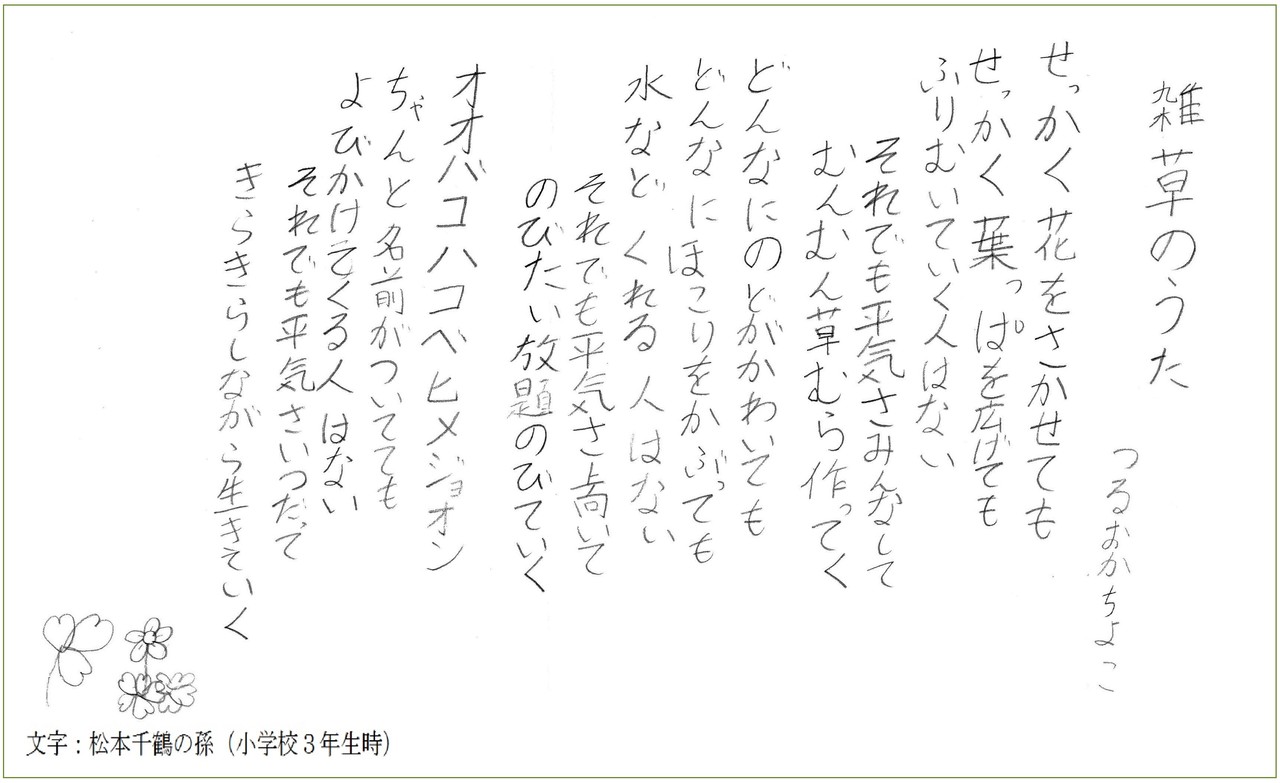 雑草のうた
つるおかちよこ
せっかく花をさかせても
せっかく葉っぱを広げても
ふりむいていく人はない
それでも平気さみんなして
むんむん草むら作ってく
どんなにのどがかわいても
どんなにほこりをかぶっても
水などくれる人はない
それでも平気さ上向いて
のびたい放題のびていく
オオバコハコベヒメジョオン
ちゃんと名前がついてても
よびかけてくる人はない
それでも平気さいつだって
きらきらしながら生きていく
文字：松本千鶴の孫（小学校３年生時）